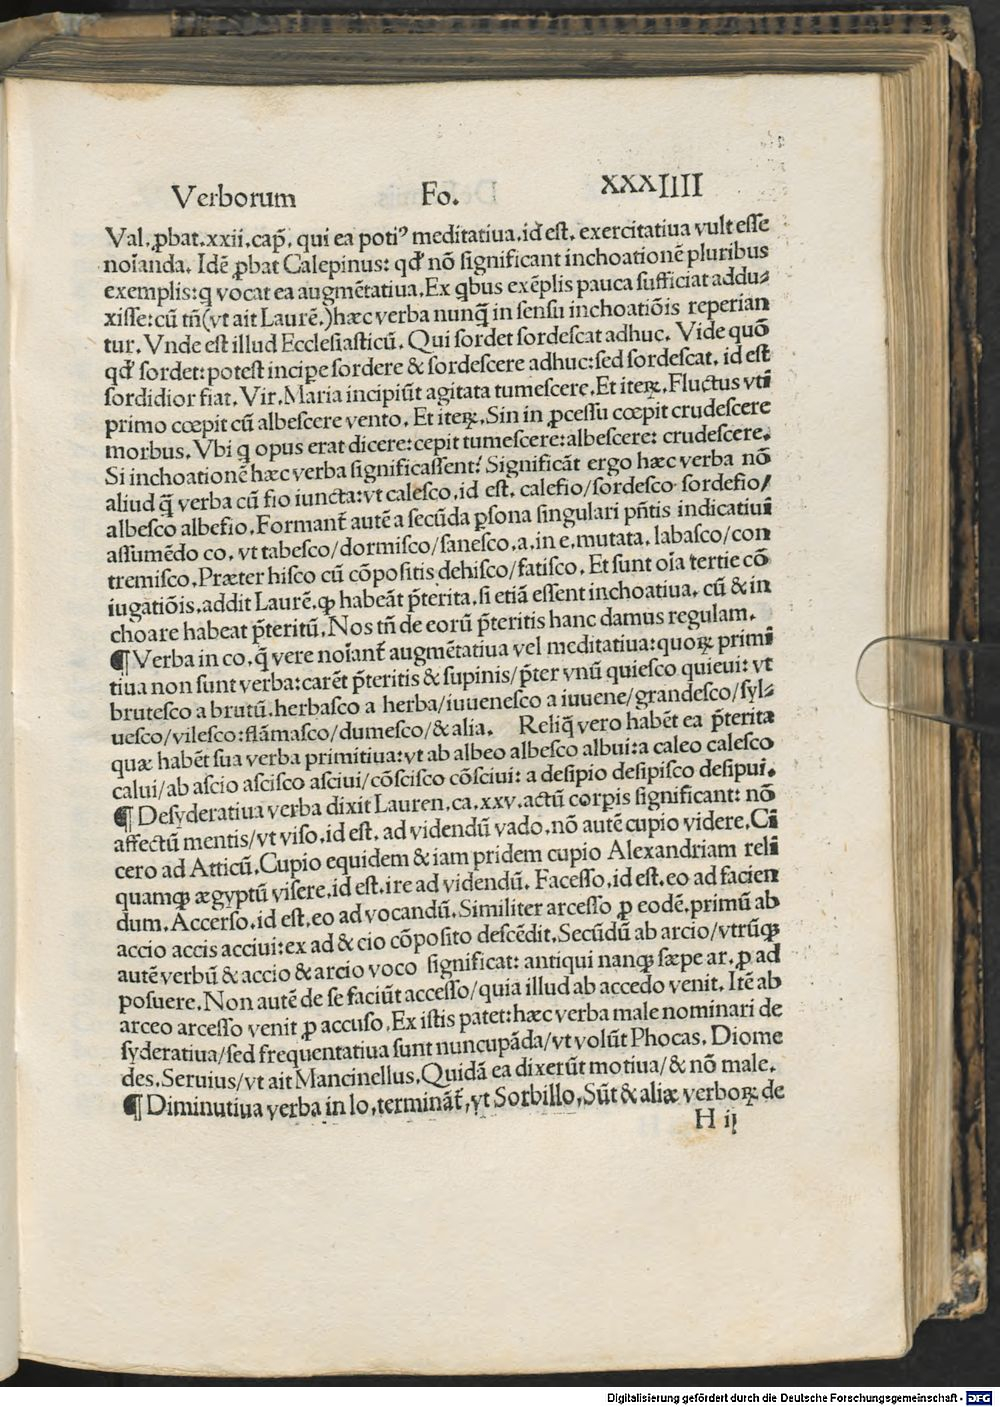 Verborum Fo. XXXIIII
Val. ꝓbat. xxii. cap̃. qui ea potiꝰ meditatiua. id est. exercitatiua vult eſſe
noĩanda. Idẽ ꝓbat Calepinus: qđ nõ ſignificant inchoationẽ pluribus
exemplis: q̃ vocat ea augmẽtatiua. Ex q̃bus exẽplis pauca ſufficiat addu⸗
xiſſe: cũ tñ (vt ait Laurẽ.) hæc verba nunq̃ in ſenſu inchoatiõis reperian
tur. Vnde eſt illud Eccleſiaſticũ. Qui ſordet ſordeſcat adhuc. Vide quõ
qđ ſordet: poteſt incipe ſordere & ſordeſcere adhuc: ſed ſordeſcat. id eſt
ſordidior fiat. Vir. Maria incipiũt agitata tumeſcere. Et iteꝝ. Fluctus vti
primo cœpit cũ albeſcere vento. Et iteꝝ. Sin in ꝓceſſu cœpit crudeſcere
morbus. Vbi q̃ opus erat dicere: cepit tumeſcere: albeſcere: crudeſcere.
Si inchoationẽ hæc verba ſignificaſſent? Significãt ergo hæc verba nõ
aliud q̃ verba cũ fio iuncta: vt caleſco. id eſt. calefio/ſordeſco ſordefio/
albeſco albefio. Formant̃ autẽ a ſecũda ꝑſona ſingulari pñtis indicatiui
aſſumẽdo co. vt tabeſco/dormiſco/ſaneſco. a. in e. mutata. labaſco/con
tremiſco. Præter hiſco cũ cõpoſitis dehiſco/fatiſco. Et ſunt oĩa tertie cõ
iugatiõis. addit Laurẽ. ꝙ habeãt p̃terita. ſi etiã eſſent inchoatiua. cũ & in
choare habeat p̃teritũ. Nos tñ de eorũ p̃teritis hanc damus regulam.
¶ Verba in co. q̃ vere noĩant̃ augmẽtatiua vel meditatiua: quoꝝ primi
tiua non ſunt verba: carẽt p̃teritis & ſupinis/p̃ter vnũ quieſco quieui: vt
bruteſco a brutũ. herbaſco a herba/iuueneſco a iuuene/grandeſco/ſyl⸗
ueſco/vileſco: flãmaſco/dumeſco/& alia. Reliq̃ vero habẽt ea p̃terita
quæ habẽt ſua verba primitiua: vt ab albeo albeſco albui: a caleo caleſco
calui/ab aſcio aſciſco aſciui/cõſciſco cõſciui: a deſipio deſipiſco deſipui.
¶ Deſyderatiua verba dixit Lauren. ca. xxv. actũ corꝑis ſignificant: nõ
affectũ mentis/vt viſo. id eſt. ad videndũ vado. nõ autẽ cupio videre. Ci
cero ad Atticũ. Cupio equidem & iam pridem cupio Alexandriam reli
quamqꝫ ægyptũ viſere. id eſt. ire ad videndũ. Faceſſo. id eſt. eo ad facien
dum. Accerſo. id eſt. eo ad vocandũ. Similiter arceſſo ꝓ eodẽ. primũ ab
accio accis acciui: ex ad & cio cõpoſito deſcẽdit. Secũdũ ab arcio/vtrũqꝫ
autẽ verbũ & accio & arcio voco ſignificat: antiqui nanqꝫ ſæpe ar. ꝓ ad
poſuere. Non autẽ de ſe faciũt acceſſo/quia illud ab accedo venit. Itẽ ab
arceo arceſſo venit ꝓ accuſo. Ex iſtis patet: hæc verba male nominari de
ſyderatiua/ſed frequentatiua ſunt nuncupãda/vt volũt Phocas. Diome
des. Seruius/vt ait Mancinellus. Quidã ea dixerũt motiua/& nõ male.
¶ Diminutiua verba in lo. terminãt̃. vt Sorbillo. Sũt & aliæ verboꝝ de
H ij
Digitalisierung gefördert durch die Deutsche Forschungsgemeinschaft - DFG